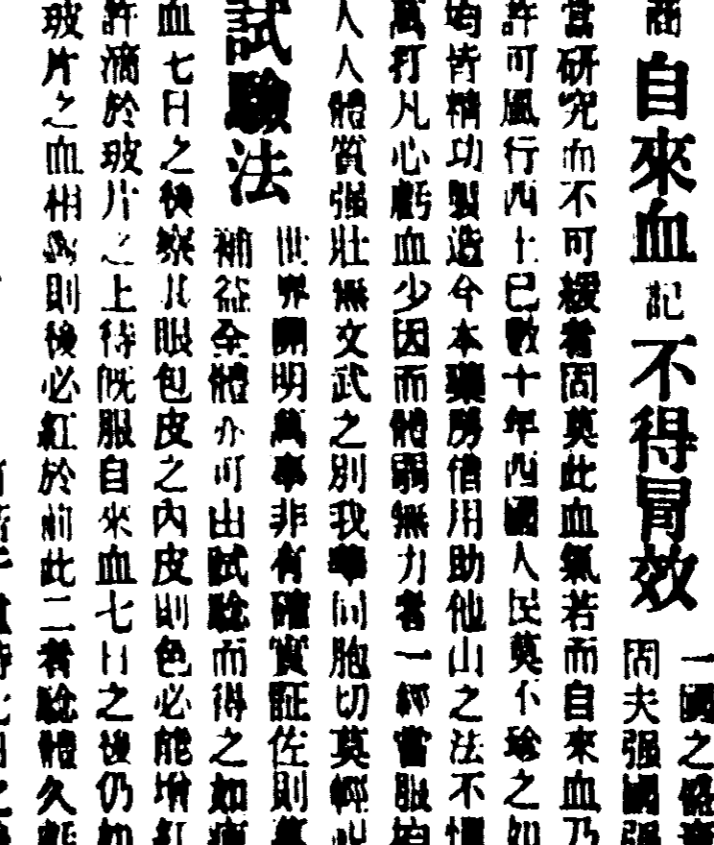 一國之
商 自來血 記 不得冒效 固夫强國
當研究而不可緩者固莫此血氣若而自來血乃
許可風行西土已數十年西國人民莫不珍之如
均皆精功製造今本藥房借用助他山之法不
萬打凡心虧血少因而體弱無力者一經嘗服
人人體質强壯無文武之別我華同胞切莫輕
試驗法 世界開明萬事非有確實証佐則
補益全體亦可由試騐而得之如
血七日之後察其眼包皮之內皮則色必能增紅
許滴於玻片之上待既服自來血七日之後仍如
玻片之血相較則後必紅於前此二者騐體久虧